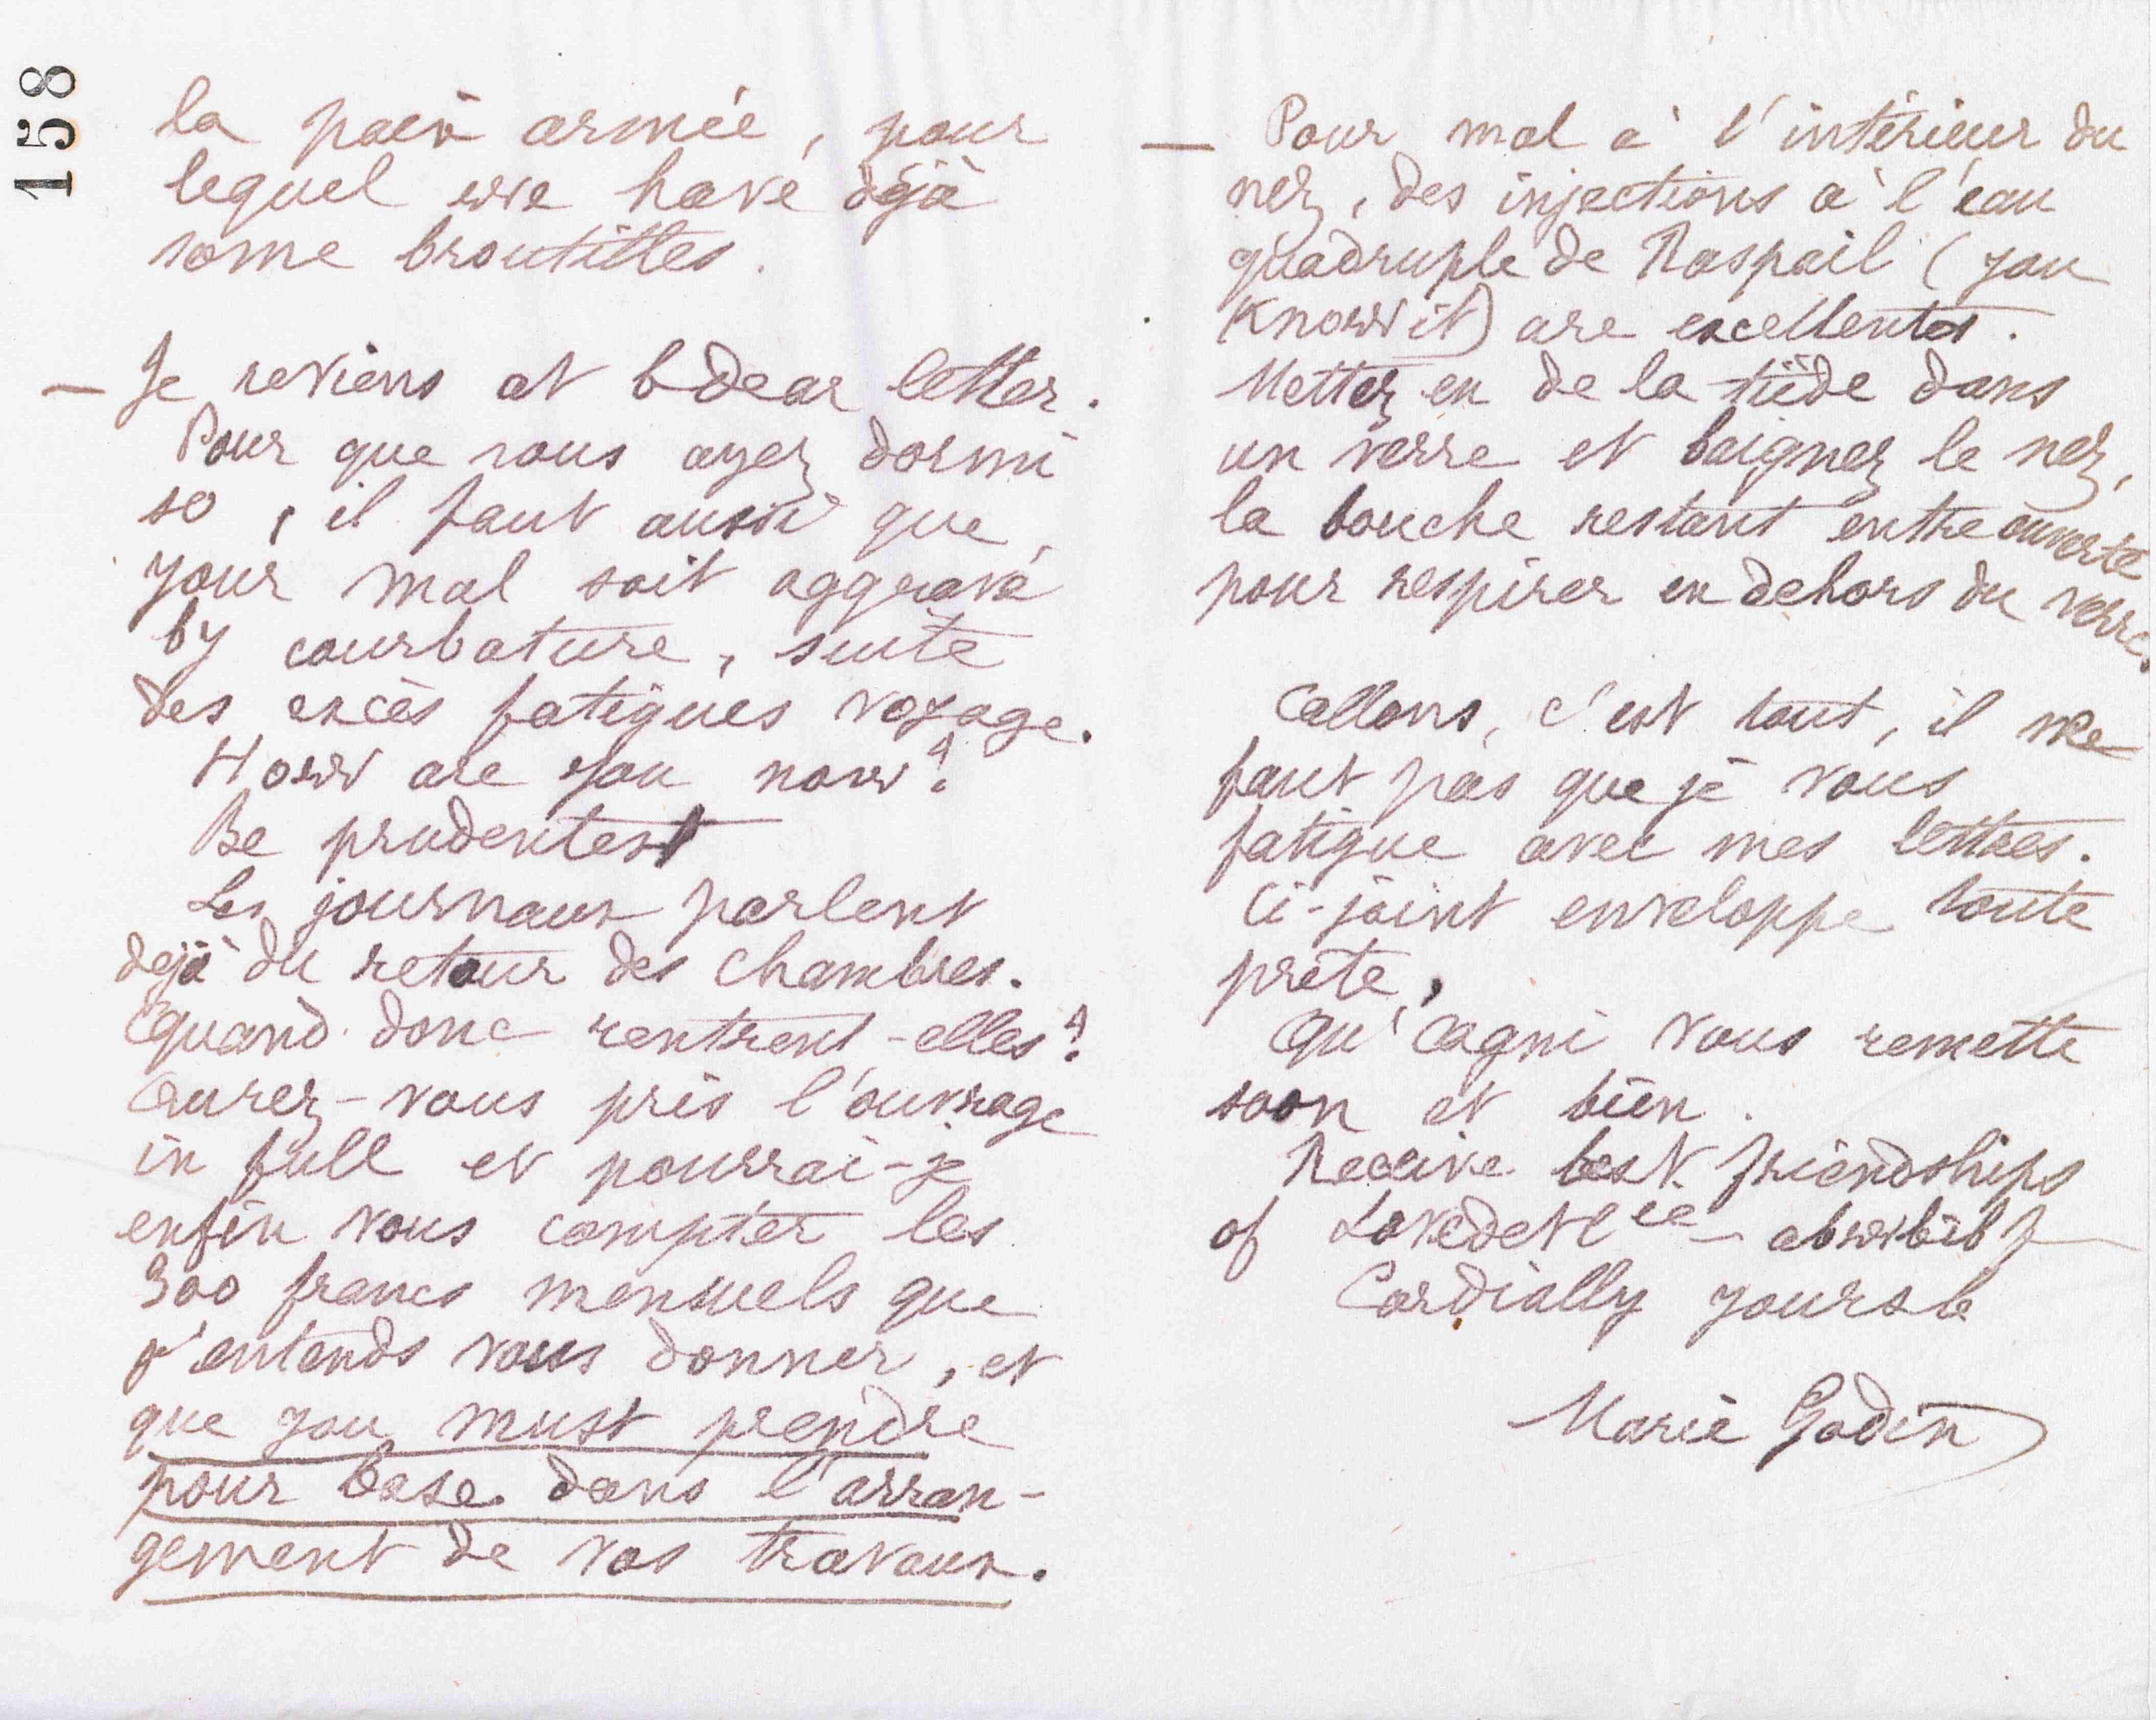 158
la paix armée, pour
lequel we have déjà
some broutilles.
— Je reviens at b dear letter.
Pour que vous ayez dormi
so, il faut aussi que
your mal soit aggravé
by courbature, suite
des excès fatigues voyage.
How are you now?
Be prudentest
Les journaux parlent
déjà du retour des chambres.
Quand donc rentrent-elles?
Aurez-vous pris l'ouvrage
in full et pourrai-je
enfin vous compter les
300 francs mensuels que
j'entends vous donner, et
que you must prendre
pour base dans l'arran-
gement de vos travaux.
— Pour mal à l'intérieur du
nez, des injections à l'eau
quadruple de Raspail (you
Know it) are excellentes.
Mettez en de la tiède dans
un verre et baignez le nez,
la bouche restant entre ouverte
pour respirer en dehors du verre.
Allons, c'est tout, il ne
faut pas que je vous
fatigue avec mes lettres.
Ci-joint enveloppe toute
prête,
Qu'Agni vous remette
soon et bien.
Receive best friendships
of
Cordially yours b
Marie Godin